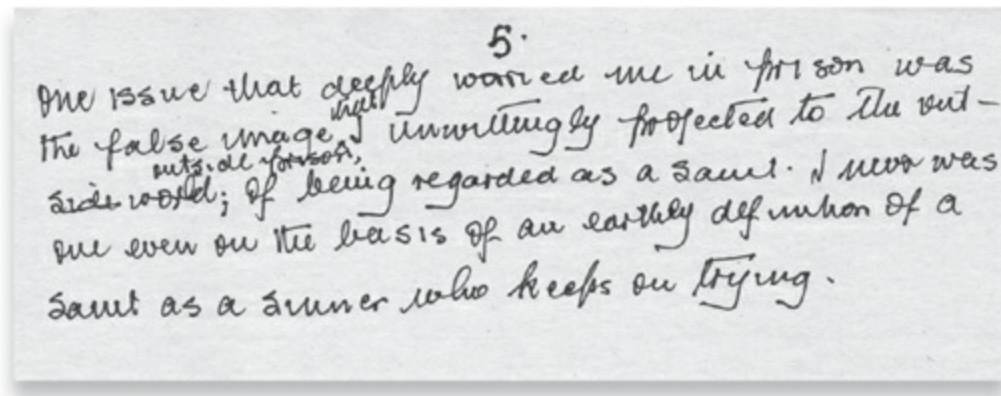 5.
One issue that deeply worried me in prison was
that
the false image I unwittingly projected to the out-
outside prison,
side world; of being regarded as a saint. I never was
one even on the basis of an earthly definition of a
saint as a sinner who keeps on trying.